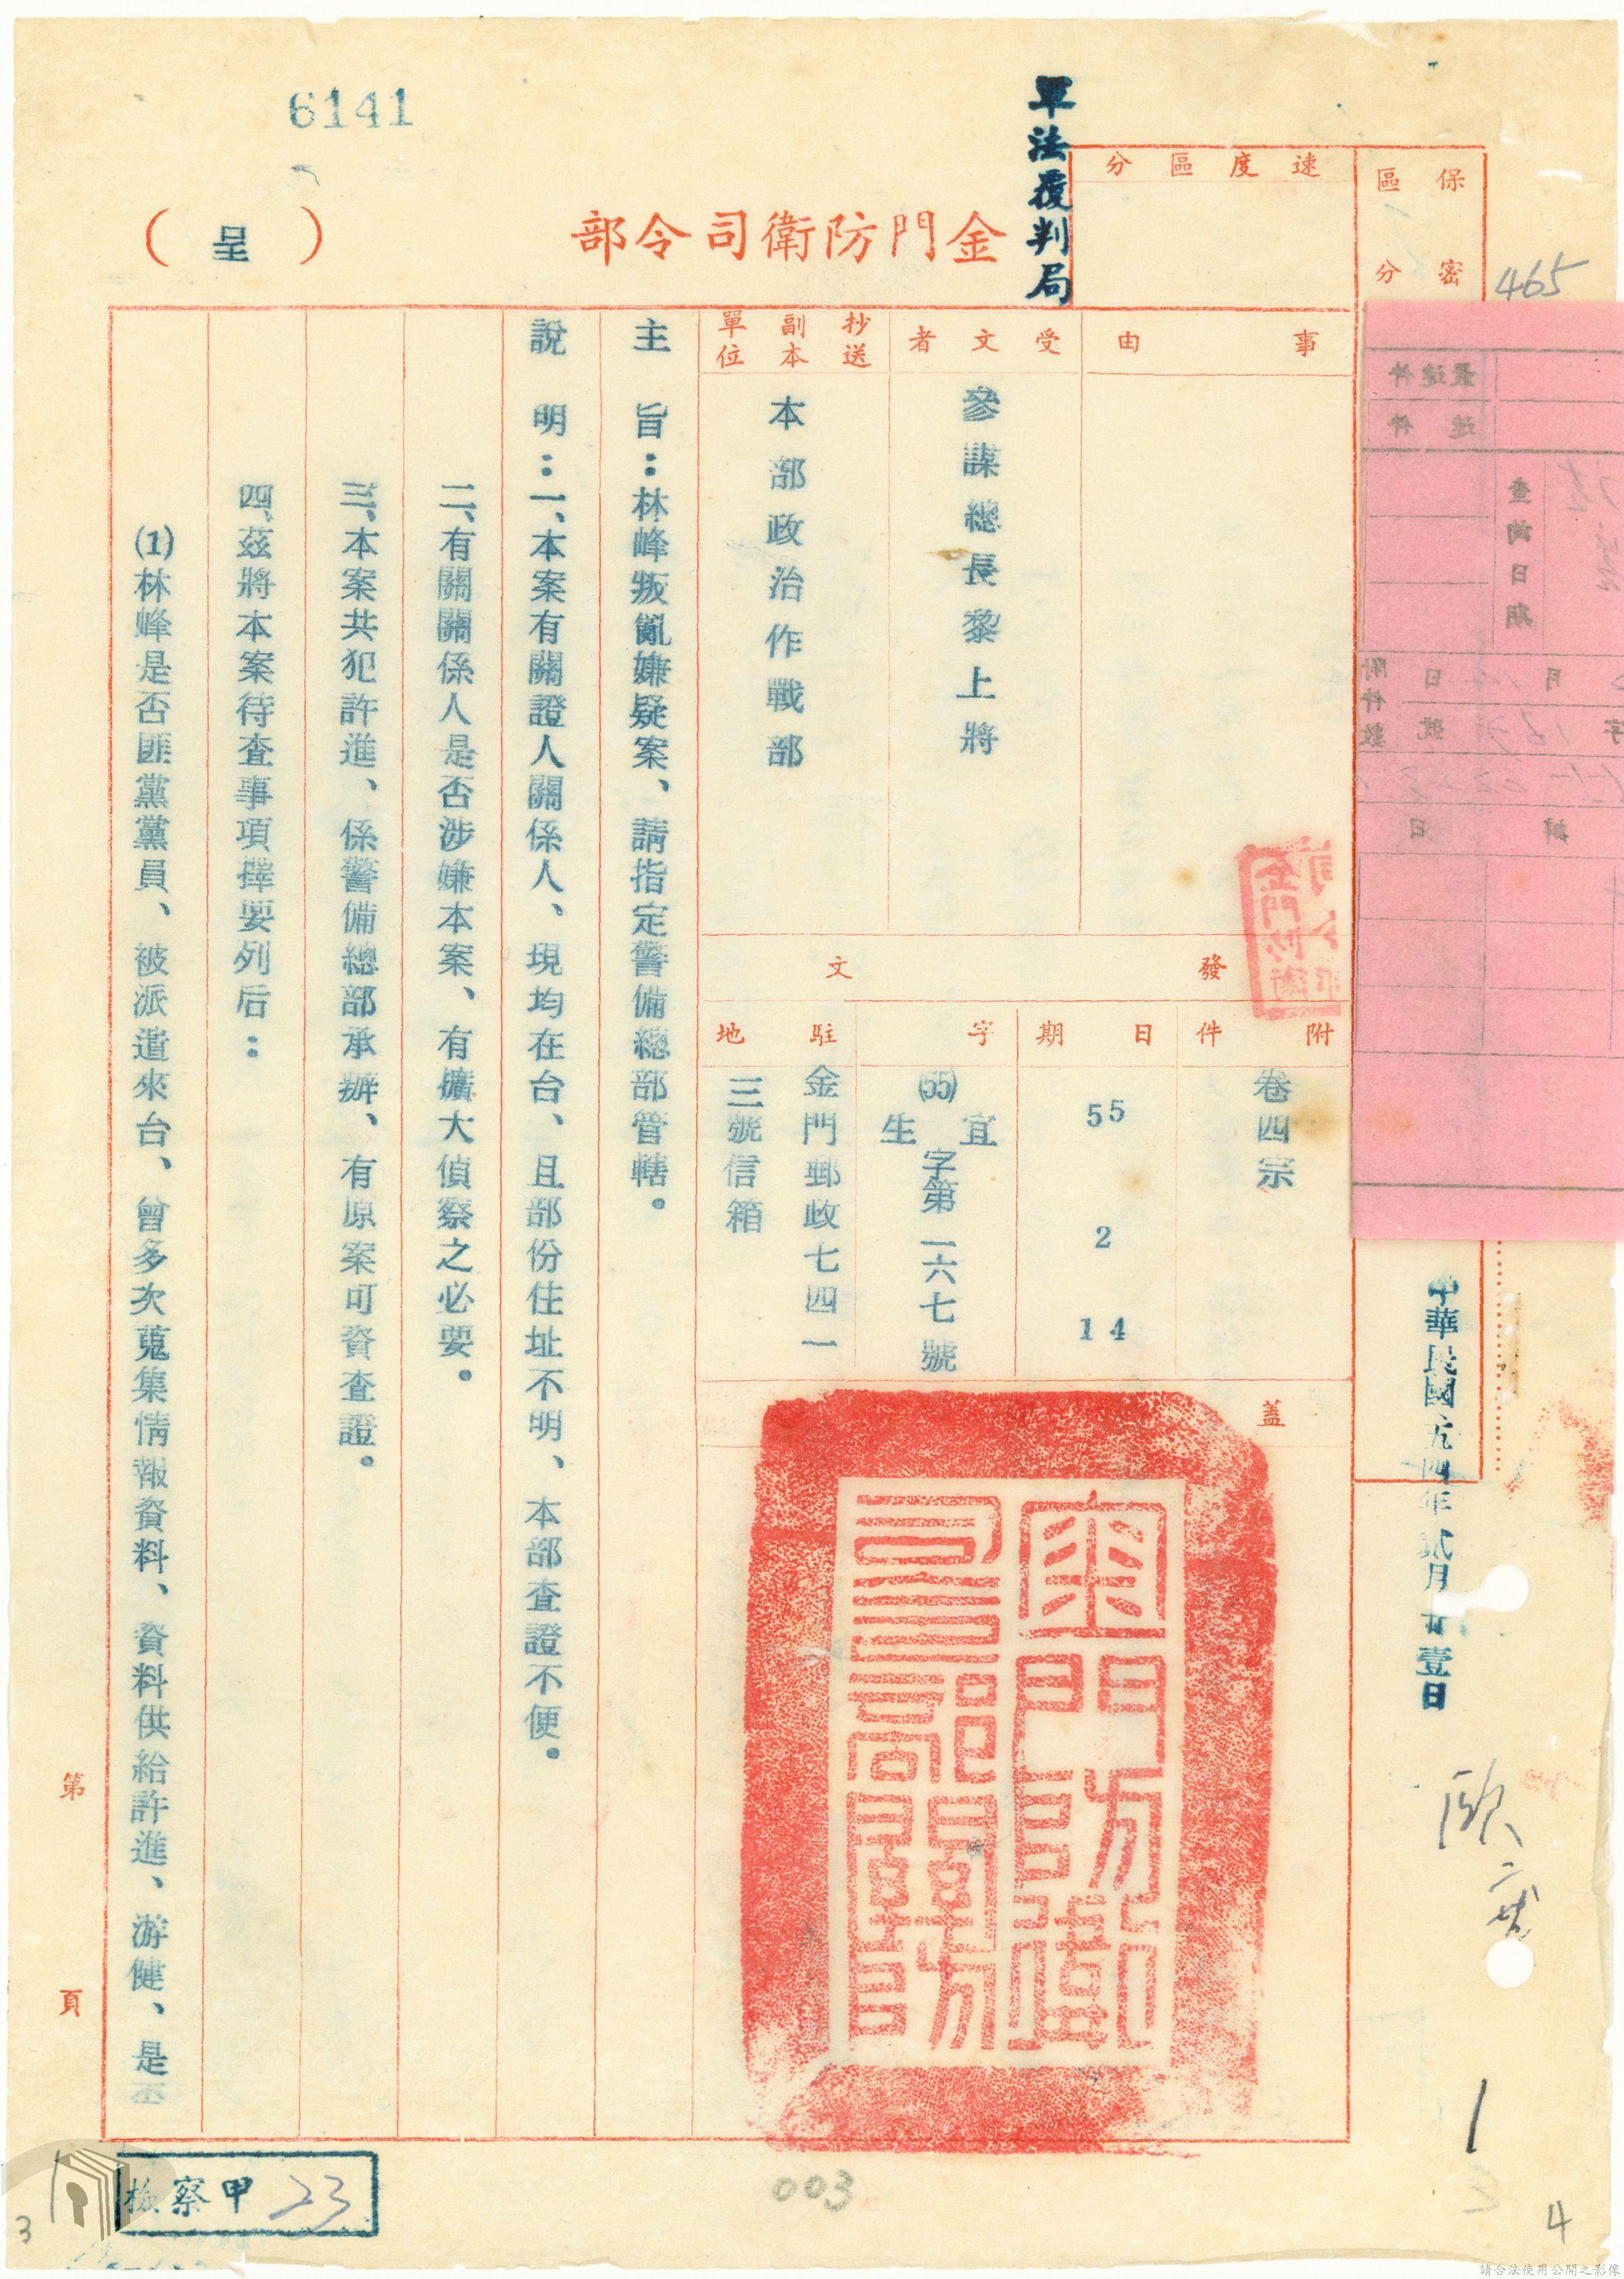 6141
軍法覆判局
金門防衛司令部
（呈）
保密區分
速度區分
465
事由
受文者
參謀總長黎上將
抄送副本單位
本部政治作戰部
發文
附件
卷四宗
日期
55 2 14
字
(55)宜生字第一六七號
駐地
金門郵政七四一
三號信箱
蓋
金門防衛司令部關防
主旨：林峰叛亂嫌疑案、請指定警備總部管轄。
說明：一、本案有關證人關係人、現均在台、且部份住址不明、本部查證不便。
二、有關關係人是否涉嫌本案、有擴大偵察之必要。
三、本案共犯許進、係警備總部承辦、有原案可資查證。
四、茲將本案待查事項擇要列后：
(1)林峰是否匪黨黨員、被派遣來台、曾多次蒐集情報資料、資料供給許進、游健、是否
最速件
速件
查詢日期
月
日
附件數
字
號
中華民國五四年貳月廿壹日
第
頁
檢察甲 23
003
1
3
3
4
請合法使用公開之影像